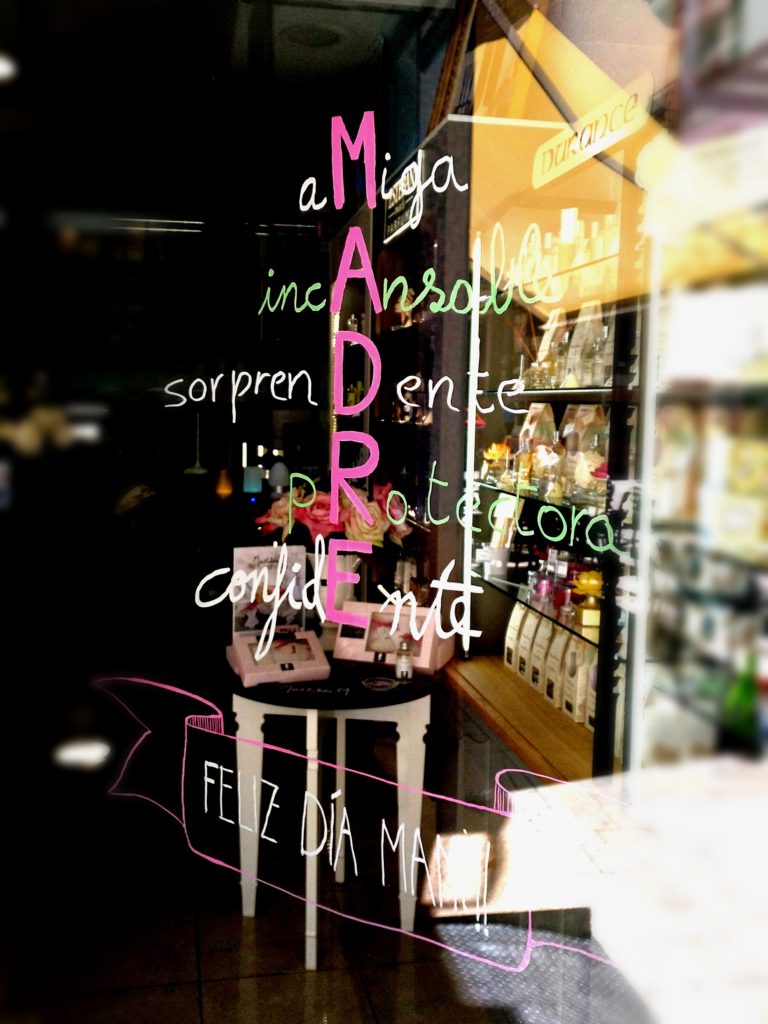 DURANCE
aMiga
incAnsable
sorprenDente
pRotectora
confidEnte
FELIZ DÍA MAMI!!